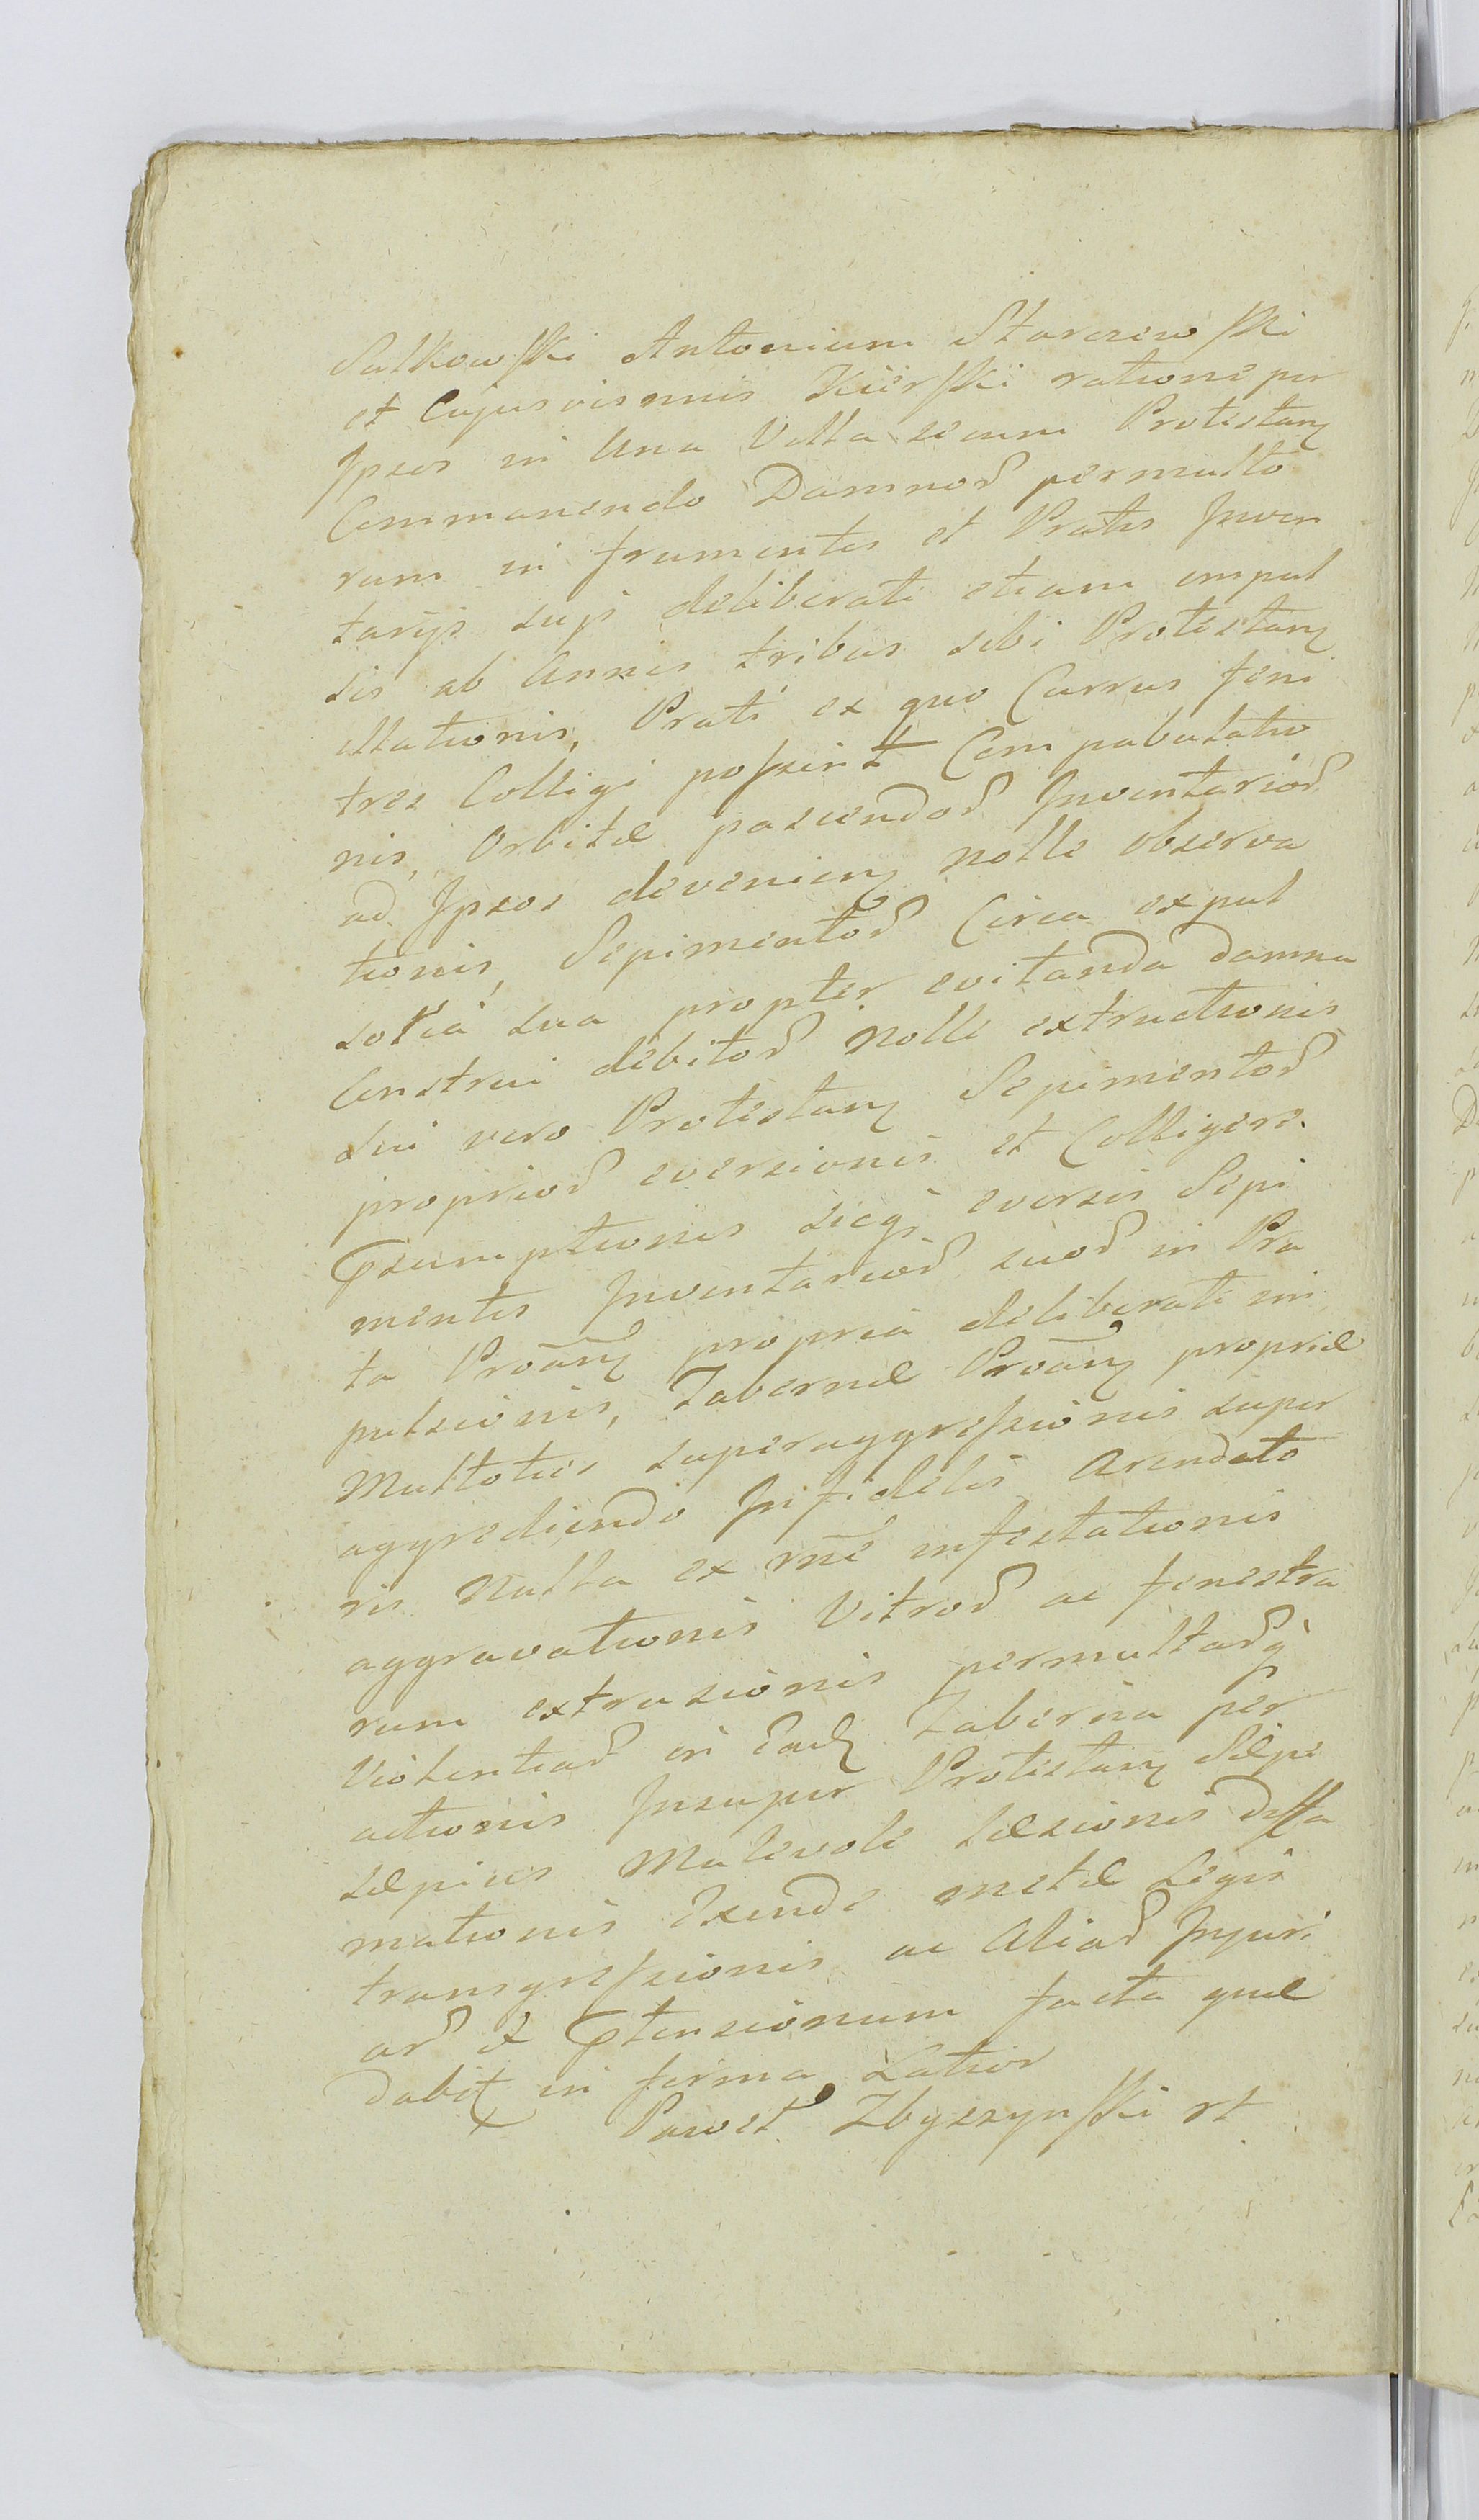 Sulkowski Antonium Starczewski
et Cujusvismus Kiierski ratione per
Ipsos in Una Villa secum Protestan
Commanendo Damnor permulto
rum in frumentis et Pratis Inven
tarijs suis deliberate etiam impul
sis ab Annis tribus sibi Protestan
illationis, Prati ex quo Currus feni
tres Colligi possint Compabulatio
nis, Orbitæ pascendor Inventarior
ad Ipsos devenien nolle observa
tionis, Sepimentor Circa expul
soria sua propter evitanda damna
Construi debitor nolle extructionis
Sui vero Protestan Sepimentor
proprior eversionis et Colligere
Præsumptionis sicq eversis Sepi
mentis Inventarior suor in Pra
ta Protan propria deliberate im
pulsionis, Tabernæ Protan propriæ
Multoties superaggressionis super
aggrediendo Infidelis Arendato
ris Nulla ex rne infestationis
aggravationis Vitror ac fenestra
rum extrusionis permultarq
Violentiar in Ead Taberna per
actionis Insuper Protestan Sæpe
sæpius Malevole læsionis diffa
mationis Exinde metæ Legis
transgressionis ac Aliar Injuri
ar & Prætensionum facta quæ
dabit in forma Latior
Paweł Zbyszynski rt